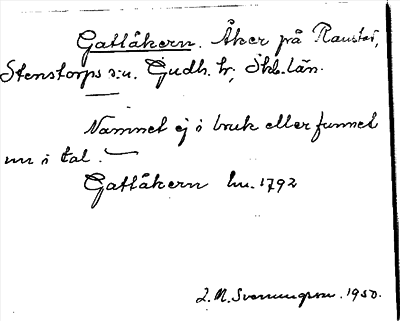 Gatlåkern. Åker på Raustad,
Stenstorps s:n. Gudh. hr, Skb. län.
Namnet ej i bruk eller funnet
nu i tal.
Gatlåkern hu. 1792
L. M. Svenungsson. 1950.